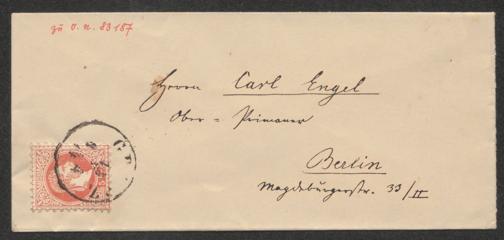 zu v. n. 83187
Herrn Carl Engel
Ober = Primaner
Berlin
Magdeburgerstr. 33/II